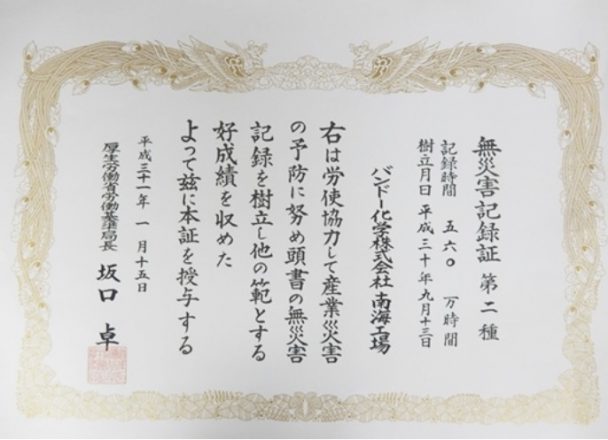 無災害記録証 第二種
記録時間 五六〇 万時間
樹立月日 平成三十年九月十三日
バンドー化学株式会社 南海工場
右は労使協力して産業災害
の予防に努め頭書の無災害
記録を樹立し他の範とする
好成績を収めた
よって茲に本証を授与する
平成三十一年 一月十五日
厚生労働省労働基準局長 坂口 卓